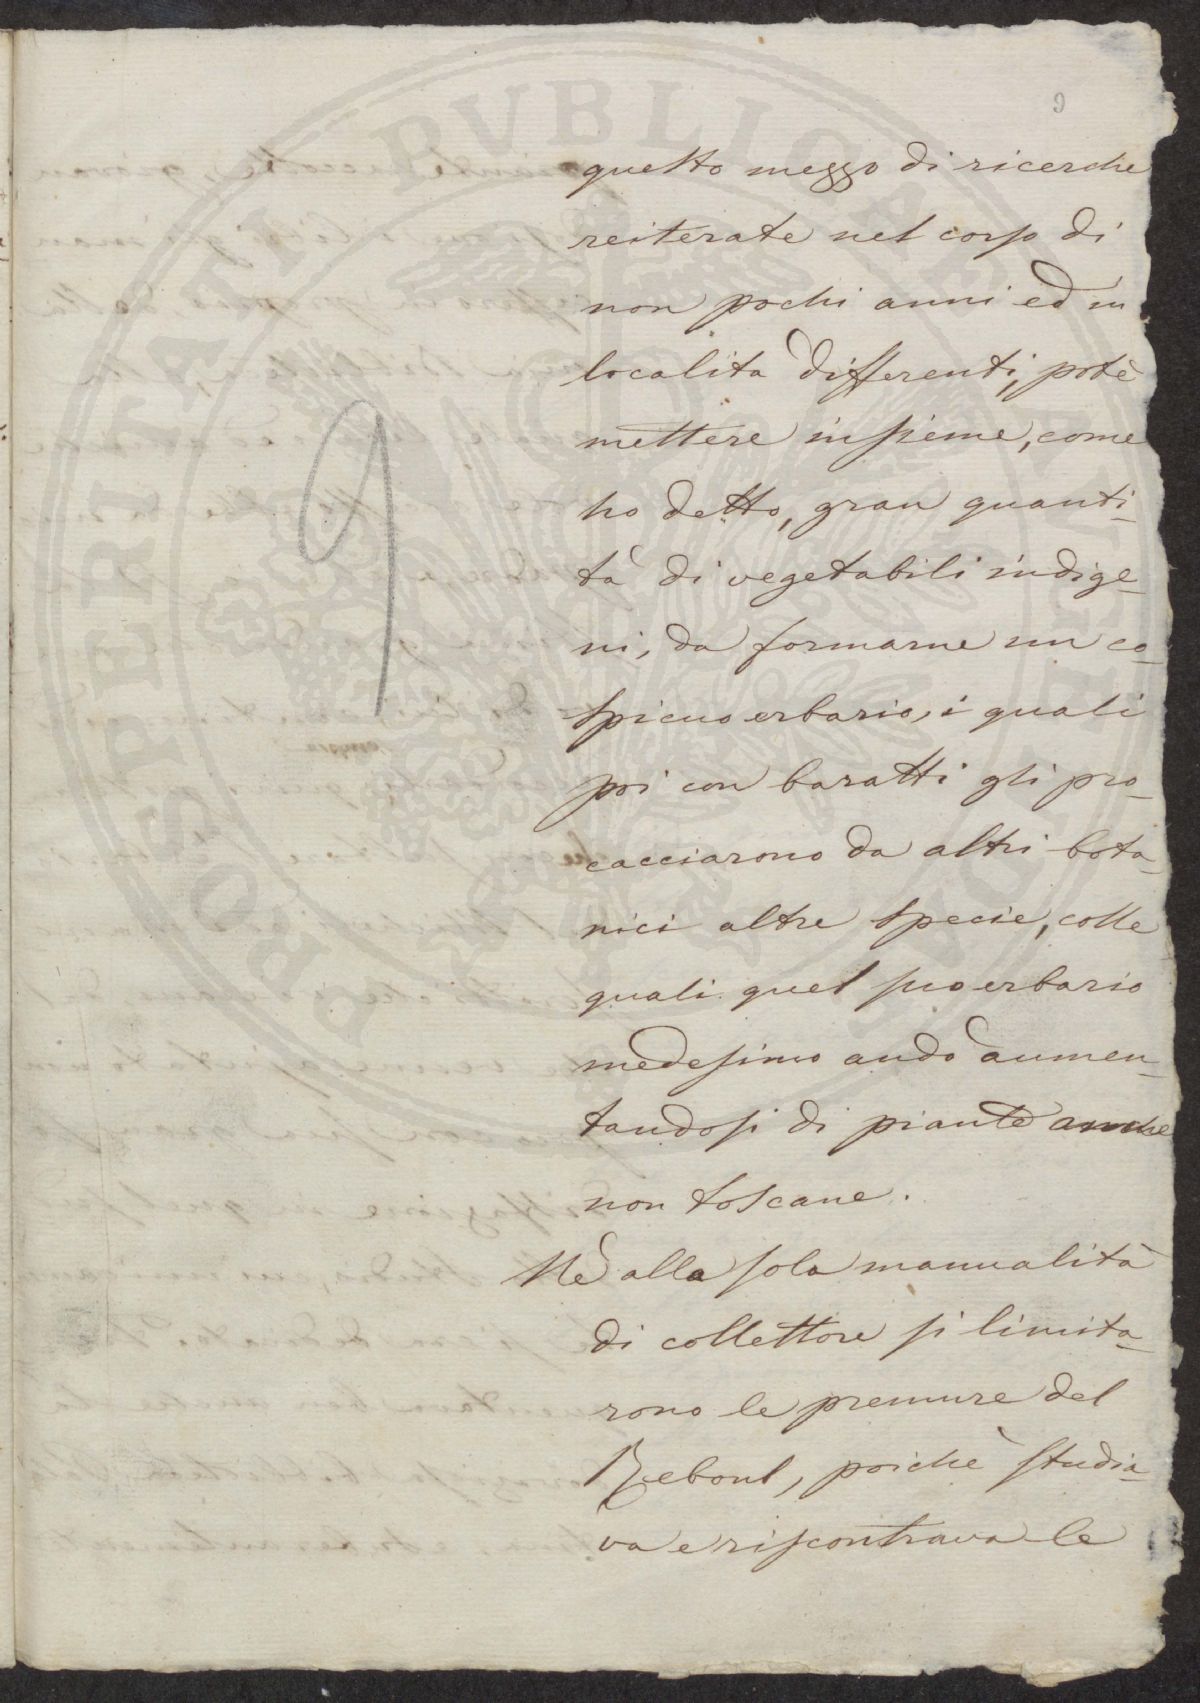 9
questo mezzo di ricerche
reiterate nel corso di
non pochi anni ed in
località differenti, potè
mettere insieme, come
9
ho detto, gran quanti-
tà di vegetabili indige-
ni, da formarne un co-
spicuo erbario, i quali
poi con baratti gli pro-
cacciarono da altri bota-
nici altre specie, colle
quali quel suo erbario
medesimo andò aumen-
tandosi di piante anche
non toscane.
Nè alla sola manualità
di collettore si limita-
rono le premure del
Reboul, poichè studia-
va e riscontrava le
PROSPERITATI PVBLICAE